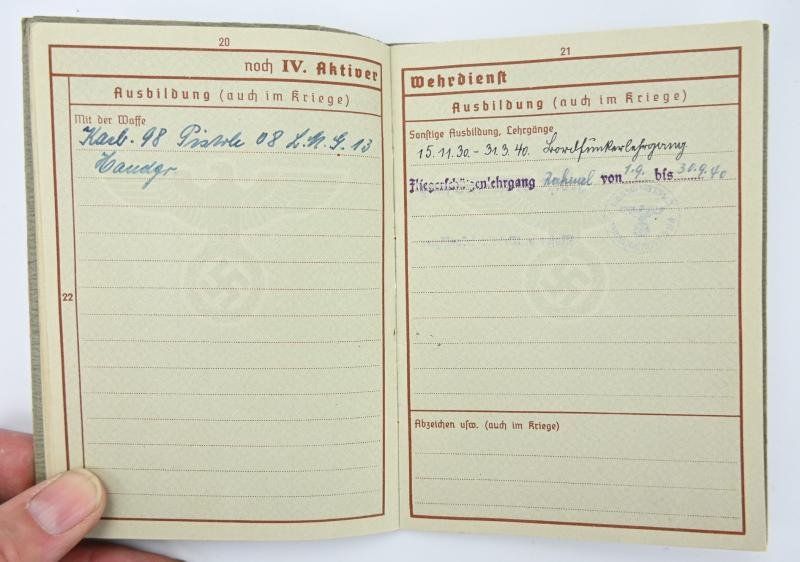 20
noch IV. Aktiver
Ausbildung (auch im Kriege)
Mit der Waffe
Karb. 98 Pistole 08 L.M.G. 13
Handgr.
22
21
Wehrdienst
Ausbildung (auch im Kriege)
Sonstige Ausbildung, Lehrgänge
15.11.30. - 31.3.40. Bordfunkerlehrgang
Fliegerschützenlehrgang von 1.9. bis 30.9.40
Abzeichen usw. (auch im Kriege)